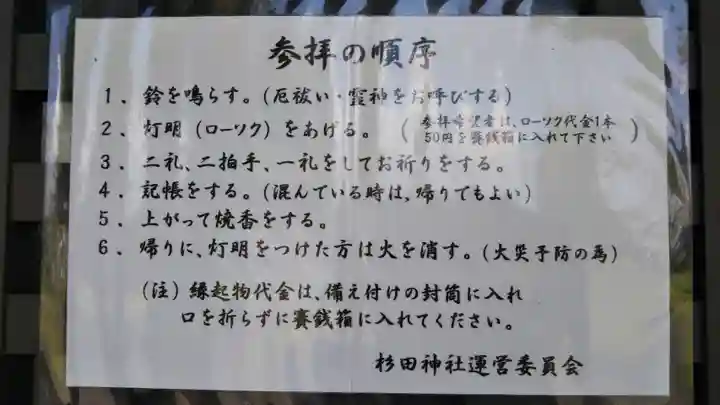 参拝の順序
1．鈴を鳴らす。(厄祓い・霊神をお呼びする)
2．灯明（ローソク）をあげる。（参拝希望者は、ローソク代金1本
50円を賽銭箱に入れて下さい）
3．二礼、二拍手、一礼をしてお祈りをする。
4．記帳をする。(混んでいる時は、帰りでもよい)
5．上がって焼香をする。
6．帰りに、灯明をつけた方は火を消す。(火災予防の為)
(注) 縁起物代金は、備え付けの封筒に入れ
口を折らずに賽銭箱に入れてください。
杉田神社運営委員会